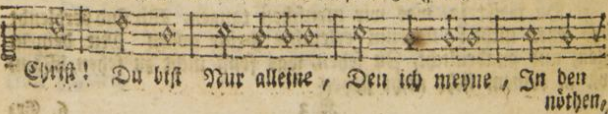 Christ! Du bist Nur alleine, Den ich meyne, In den
nöthen,